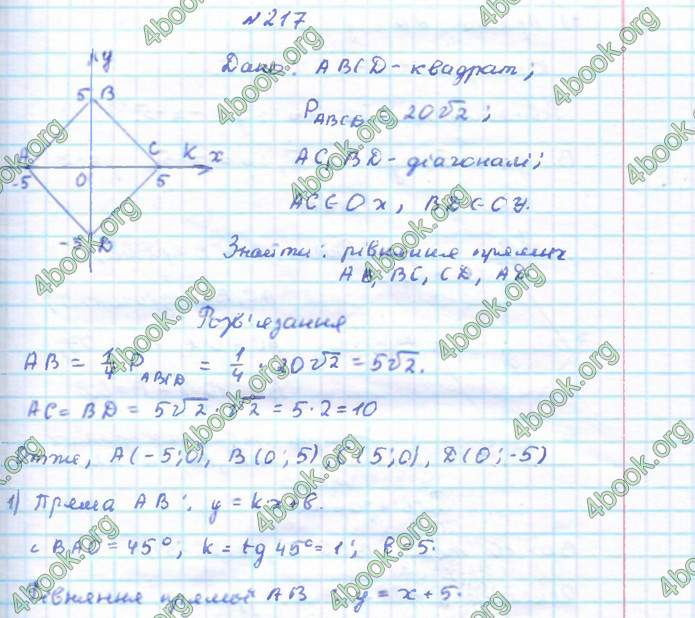 №217
Дано: ABCD - квадрат;
P_ABCD = 20√2;
AC, BD - діагоналі;
AC ∈ Ox, BD ∈ Oy.
Знайти: рівняння прямих
AB, BC, CD, AD
y
5 B
A C K x
-5 0 5
D
Розв'язання
AB = 1/4 P_ABCD = 1/4 · 20√2 = 5√2.
AC = BD = 5√2 · √2 = 5·2 = 10
Отже, A(-5;0), B(0;5), C(5;0), D(0;-5)
1) Пряма AB: y = kx+b.
∠BAO = 45°; k = tg 45° = 1; b = 5.
Рівняння прямої AB y = x + 5.
4book.org